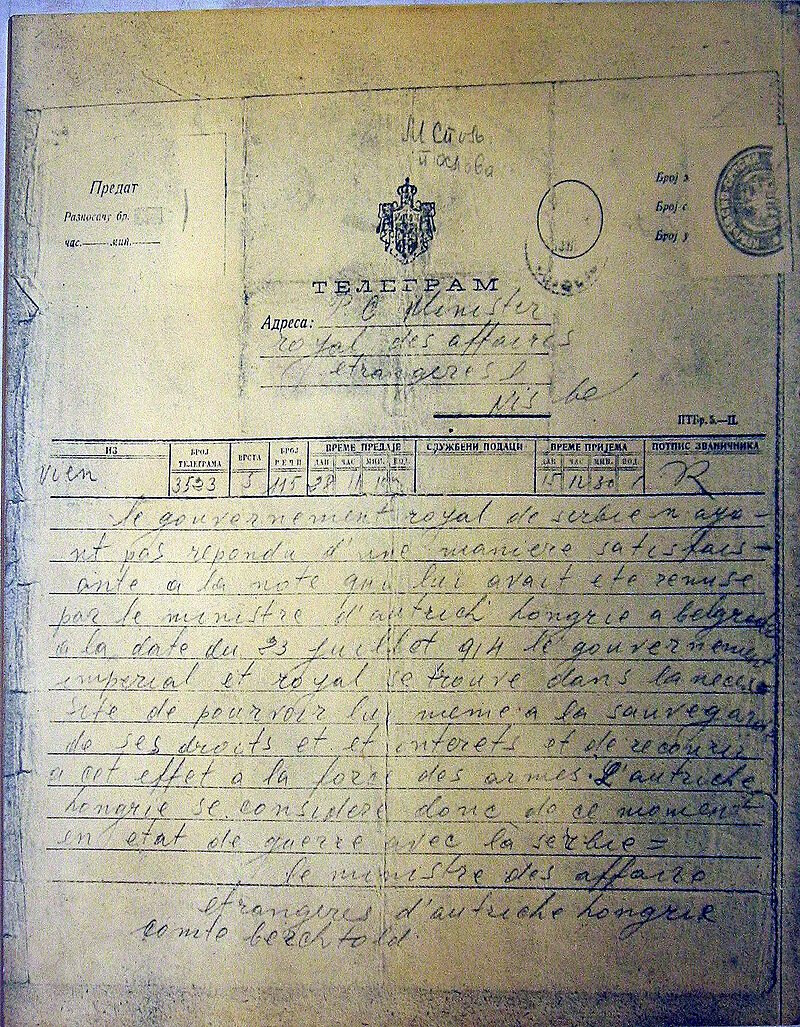 Предат
Разносачу бр.
час. мин.
М Сп
послова
Број
Број
Број
ТЕЛЕГРАМ
Адреса: Minister
royal des affaires
etrangeres
Nis
ПТБр. 5.—П.
ИЗ БРОЈ ТЕЛЕГРАМА ВРСТА БРОЈ РЕЧИ ВРЕМЕ ПРЕДАЈЕ СЛУЖБЕНИ ПОДАЦИ ВРЕМЕ ПРИЈЕМА ПОТПИС ЗВАНИЧНИКА
ДАН ЧАС МИН. ПОД ДАН ЧАС МИН. ПОД
vien 3523 5 115 28 11 12 30
le gouvernement royal de serbie n aya-
nt pas repondu d'une maniere satisfais-
ante a la note qui lui avait ete remise
par le ministre d'autrich hongrie a belgrade
a la date du 23 juillet 914 le gouvernement
imperial et royal se trouve dans la neces
site de pourvoir lui meme a la sauvegar
de ses droits et et interets et de recourir
a cet effet a la force des armes. L'autriche
hongrie se considere donc de ce moment
en etat de guerre avec la serbie =
le ministre des affaire
etrangeres d'autriche hongrie
comte berchtold.